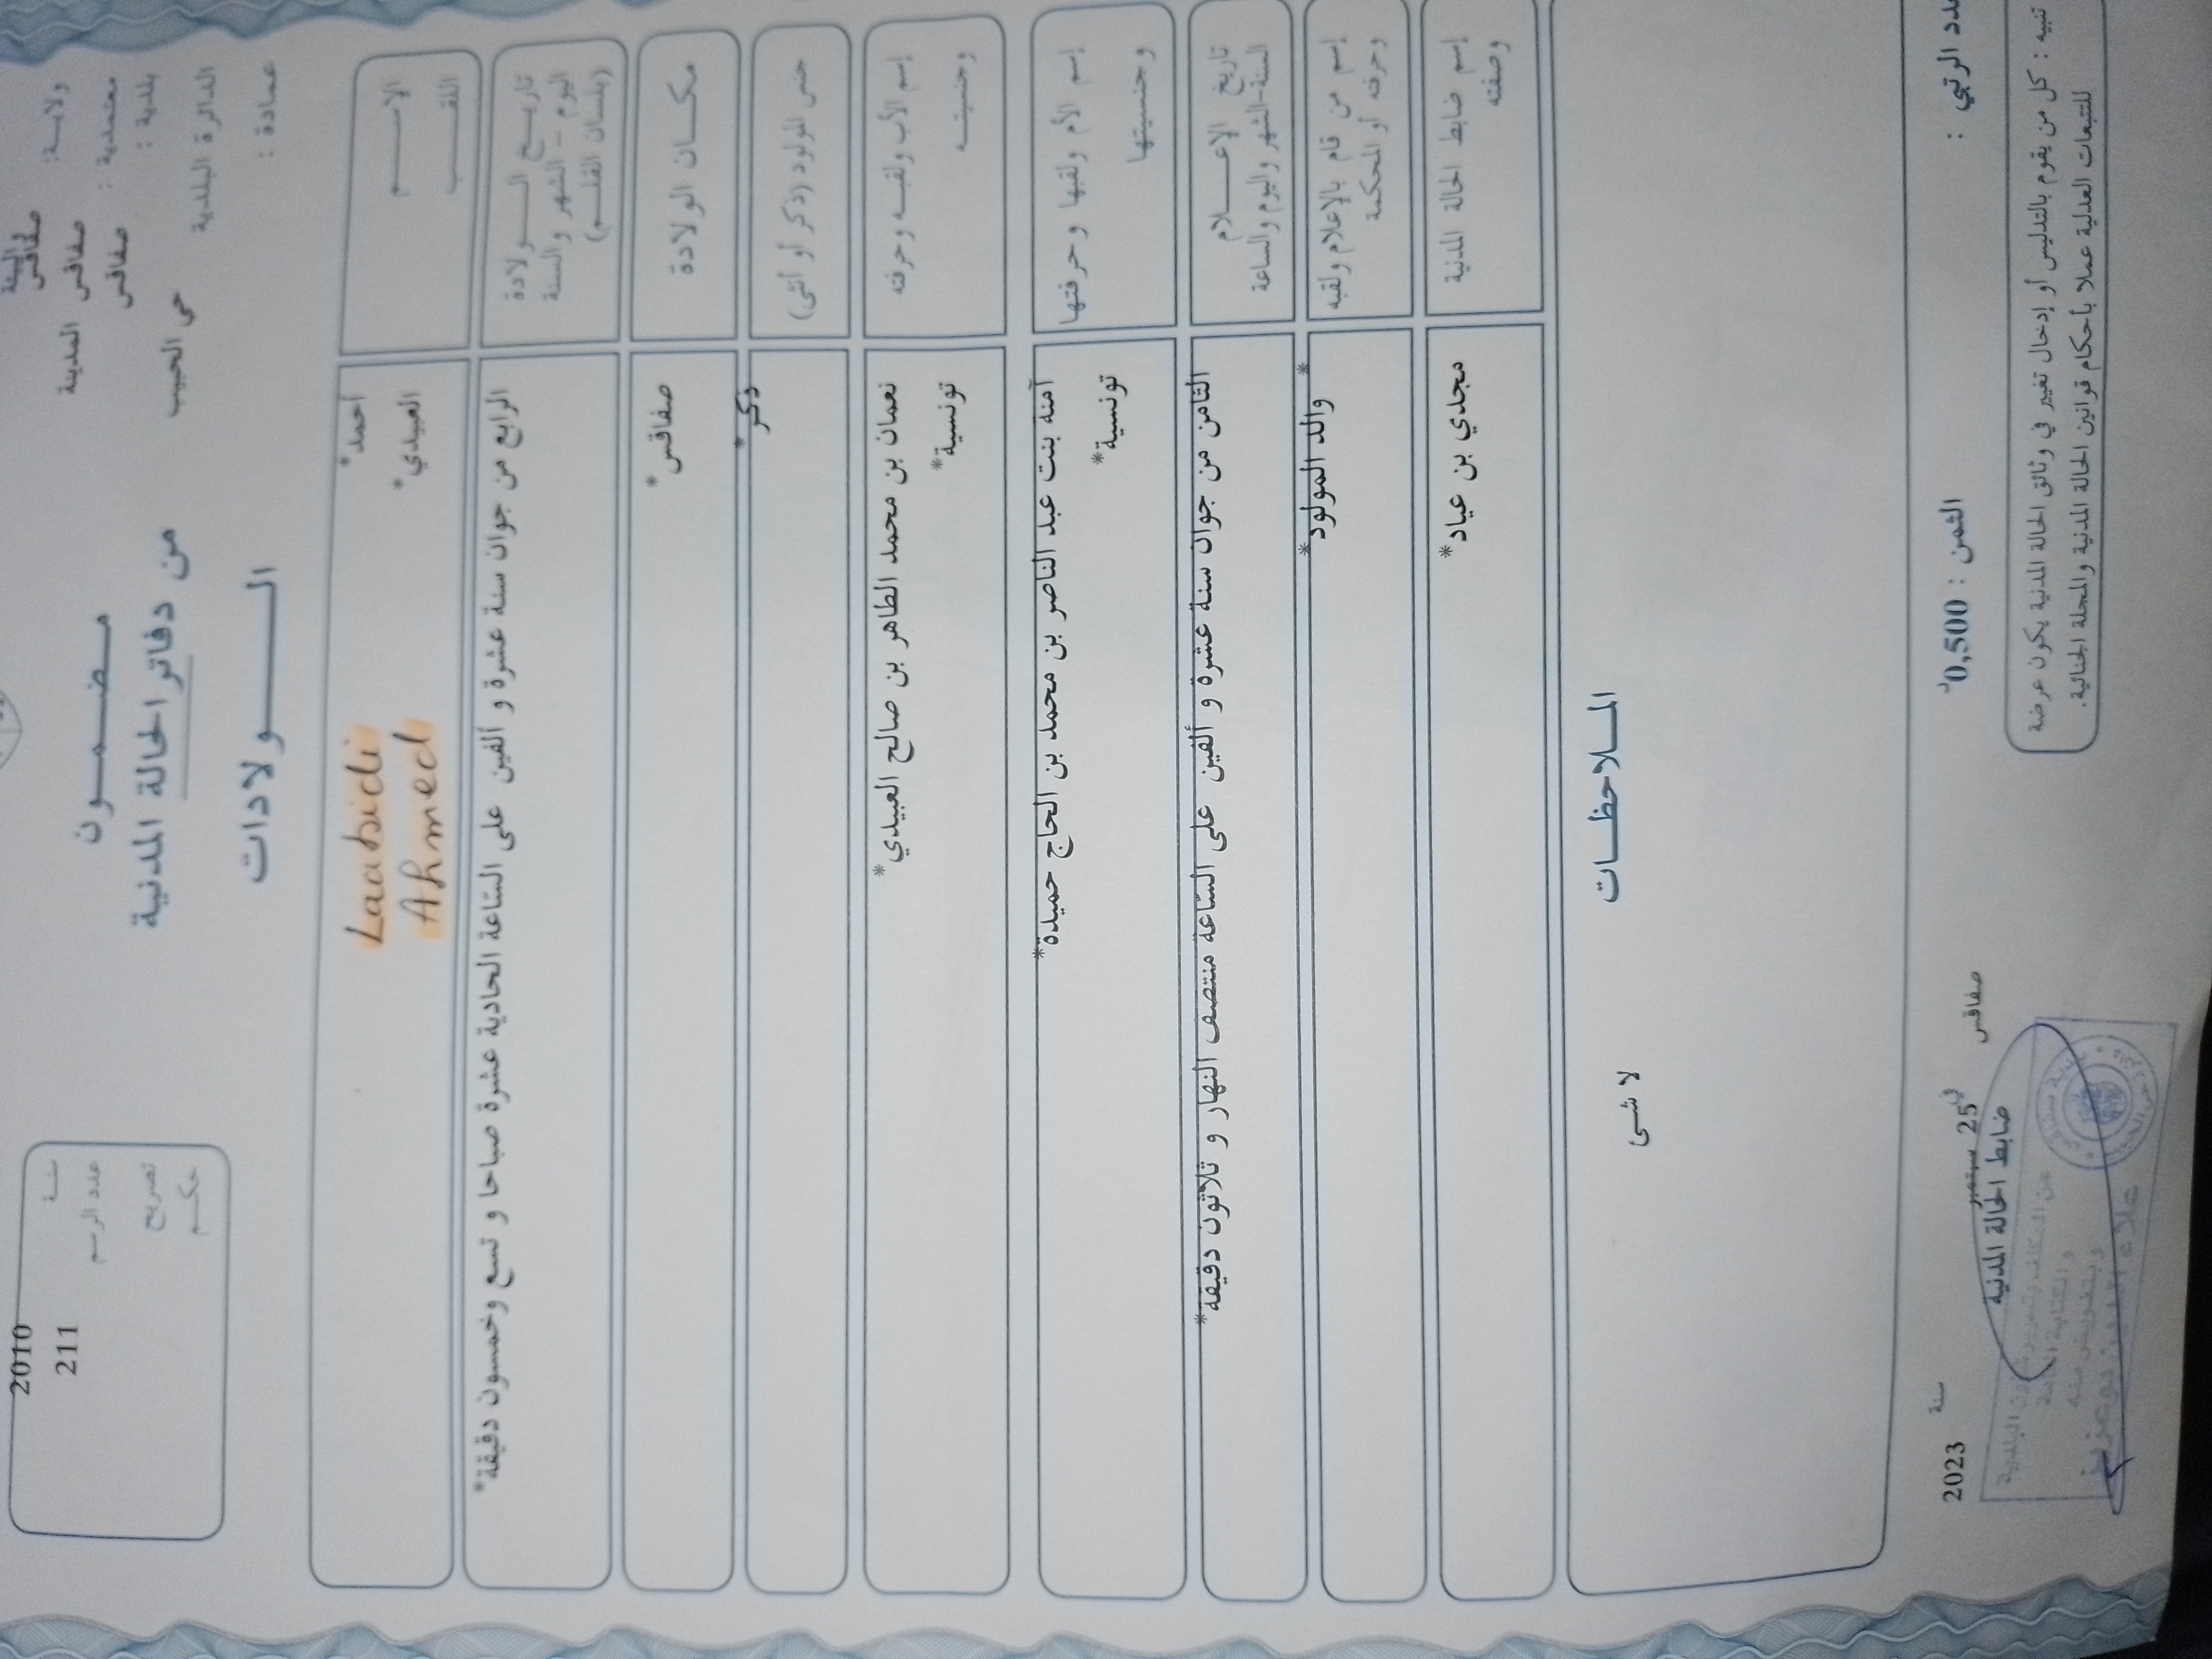 ولايـة: صفاقس
معتمدية : صفاقس المدينة
بلدية : صفاقس
الدائرة البلدية حي الحبيب
عمادة :
مـضـمـون
من دفاتر الحالة المدنية
الـولادات
سنـة 2010
عدد الرسم 211
تصريح
حكـم
الاسـم أحمد*
اللقـب العبيدي*
Laabidi
Ahmed
تاريـخ الـولادة
اليوم - الشهر والسنة
(بلسان القلـم)
الرابع من جوان سنة عشرة و ألفين على الساعة الحادية عشرة صباحا و تسع وخمسون دقيقة*
مكـان الولادة صفاقس*
جنس المولود (ذكر أو أنثى) ذكر*
إسم الأب ولقبـه وحرفته نعمان بن محمد الطاهر بن صالح العبيدي*
وجنسيتـه تونسية*
إسم الأم ولقبها وحرفتها آمنة بنت عبد الناصر بن محمد بن الحاج حميدة*
وجنسيتها تونسية*
تاريخ الإعـلام
السنة-الشهر واليوم والساعة
الثامن من جوان سنة عشرة و ألفين على الساعة منتصف النهار و ثلاثون دقيقة*
إسم من قام بالإعلام ولقبه
وحرفته أو المحكمة
*
والد المولود*
إسم ضابط الحالة المدنية
وصفته
مجدي بن عياد*
المـلاحظـات
لا شئ
عدد الرتبي :
الثمن : 0,500د
صفاقس في 25 سبتمبر سنة 2023
ضابط الحالة المدنية
تنبيه : كل من يقوم بالتدليس أو إدخال تغيير في وثائق الحالة المدنية يكون عرضة
للتبعات العدلية عملا بأحكام قوانين الحالة المدنية والمجلة الجنائية.